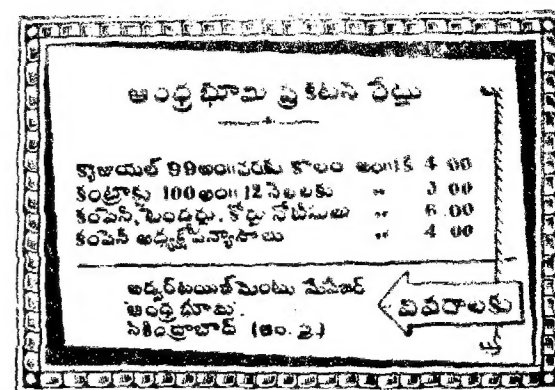 ఆంధ్ర భూమి ప్రకటన రేట్లు
కాజుయల్ 99 అం॥వరకు కాలం అం॥కి 4 00
కంట్రాక్టు 100 అం॥ 12 నెలలకు ,, 3 00
కంపెనీ, టెండర్లు, కోర్టు నోటీసులు ,, 6.00
కంపెనీ అధ్యక్షోపన్యాసాలు ,, 4 00
అడ్వర్‌టయిజ్‌మెంటు మేనేజర్
'ఆంధ్ర భూమి'.
సికింద్రాబాద్ (ఆం. ప్ర.)
వివరాలకు